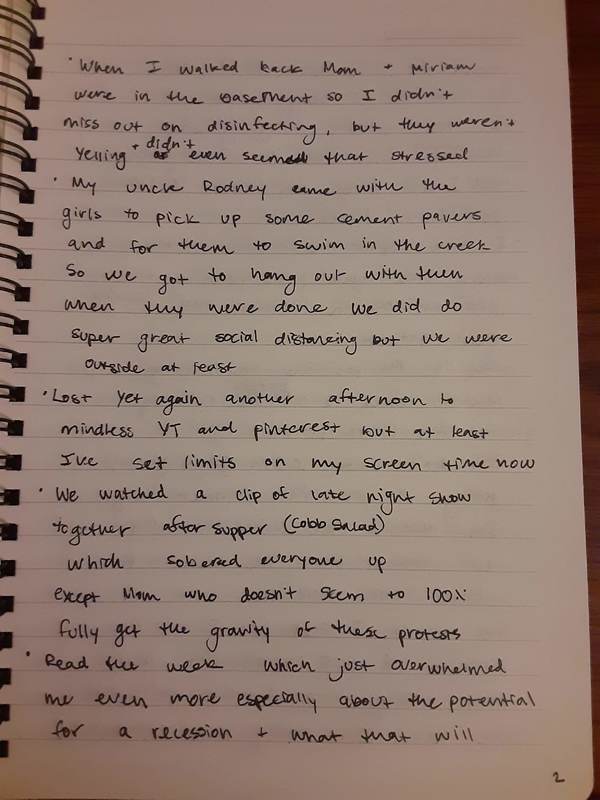 • When I walked back Mom + Miriam
were in the basement so I didn't
miss out on disinfecting, but they weren't
yelling + didn't even seemed that stressed
• My uncle Rodney came with the
girls to pick up some cement pavers
and for them to swim in the creek
So we got to hang out with then
when they were done we did do
super great social distancing but we were
outside at least
• Lost yet again another afternoon to
mindless YT and pinterest but at least
I've set limits on my screen time now
• We watched a clip of late night show
together after supper (Cobb Salad)
which sobered everyone up
except Mom who doesn't seem to 100%
fully get the gravity of these protests
• Read the week which just overwhelmed
me even more especially about the potential
for a recession + what that will
2